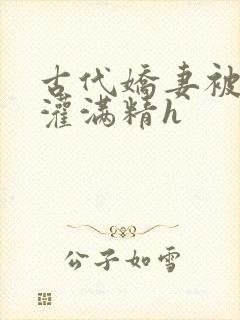 古代嬌妻被
灌滿精h
公子如雪